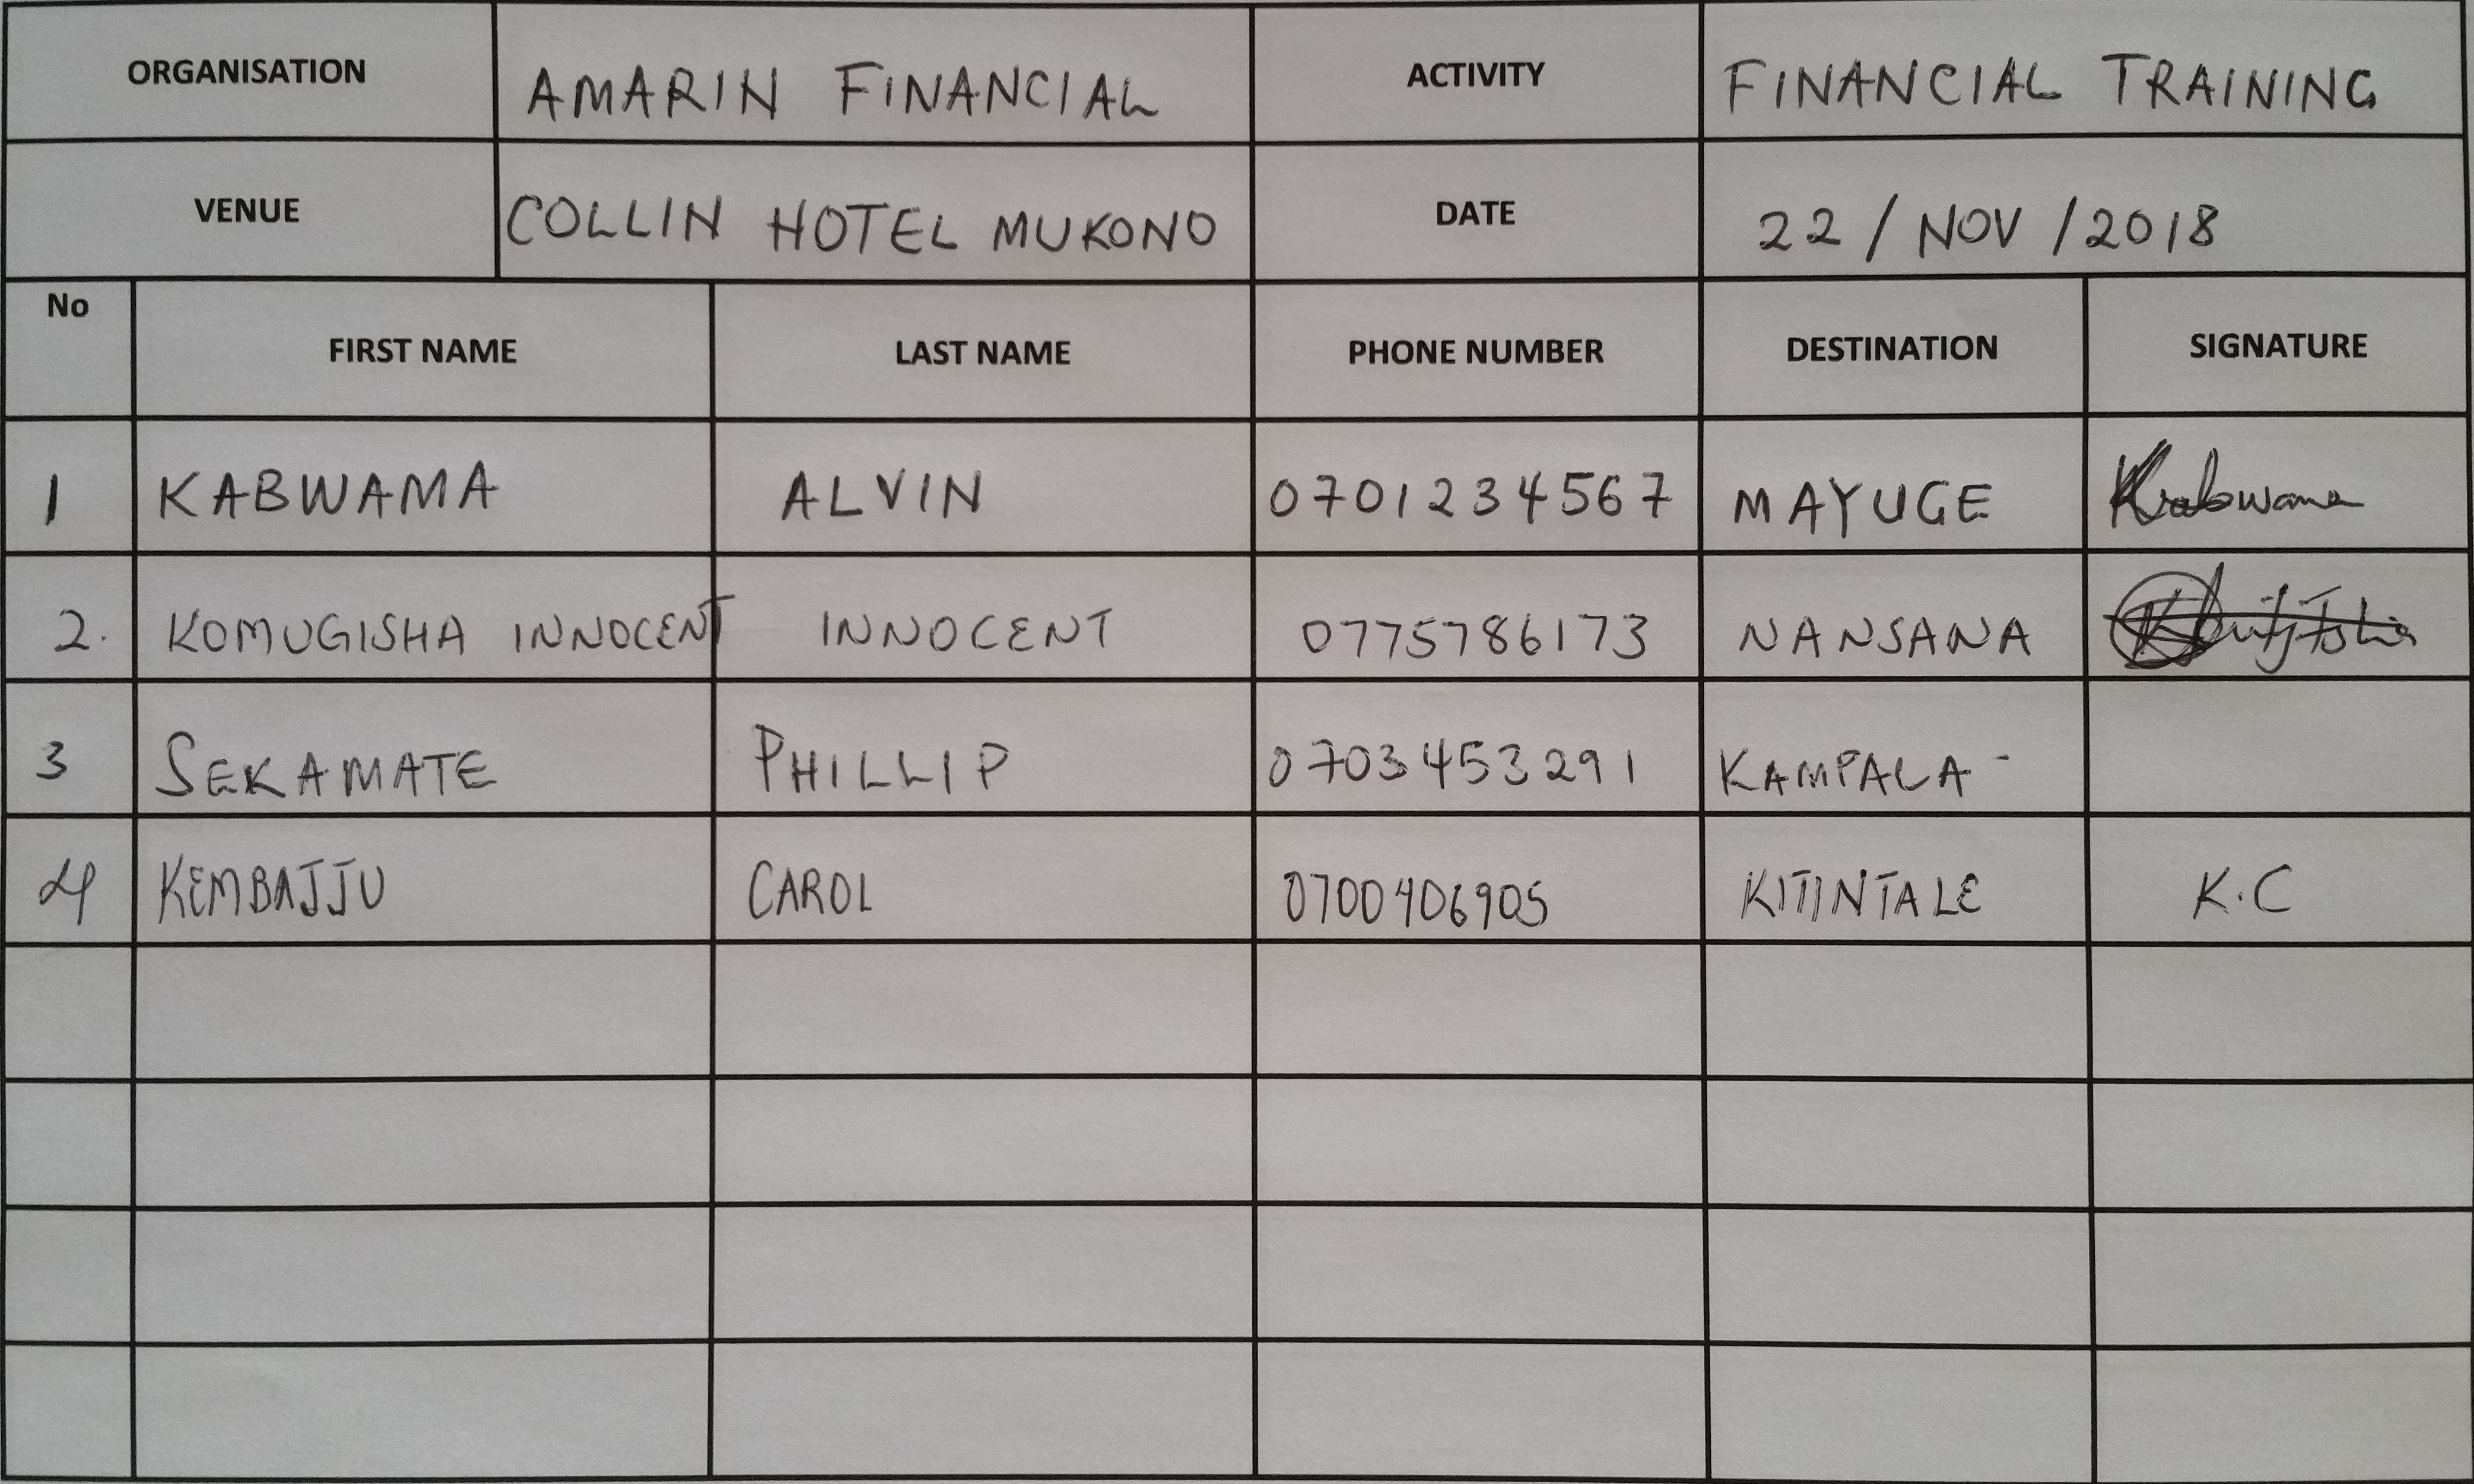 ORGANISATION AMARIN FINANCIAL ACTIVITY FINANCIAL TRAINING
VENUE COLLIN HOTEL MUKONO DATE 22 / NOV / 2018
No FIRST NAME LAST NAME PHONE NUMBER DESTINATION SIGNATURE
1 KABWAMA ALVIN 0701234567 MAYUGE Kabwama
2. KOMUGISHA INNOCENT INNOCENT 0775786173 NANSANA
3 SEKAMATE PHILLIP 0703453291 KAMPALA -
4 KEMBAJJU CAROL 0700406905 KITINTALE K.C